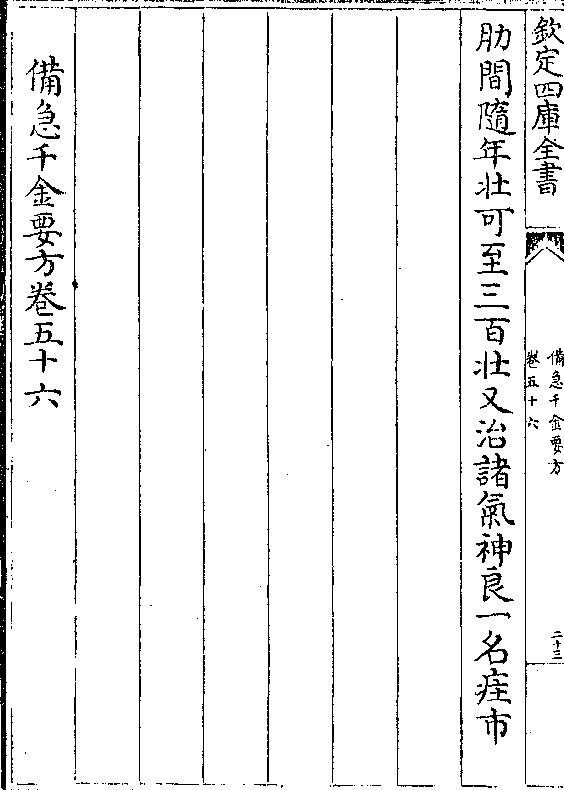 欽定四庫全書
備急千金要方
卷五十六
二十三
肋間隨年壯可至三百壯又治諸氣神良一名疰市
備急千金要方卷五十六